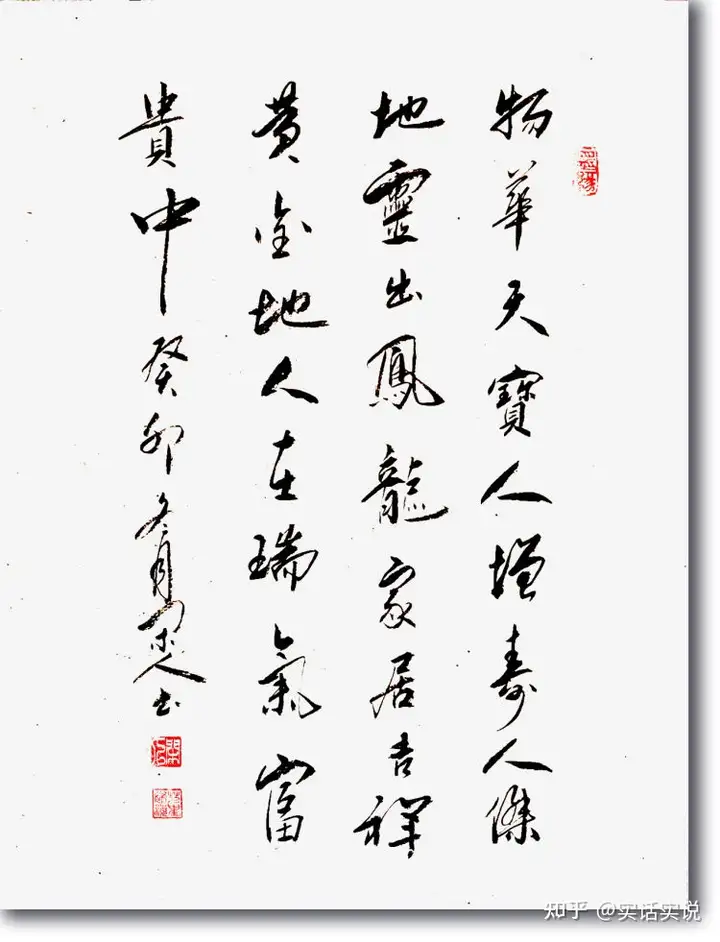 物華天寶人增壽人傑
地靈出鳳龍家居吉祥
黄金地人在瑞氣富
貴中癸卯冬月人书
知乎 @实话实说